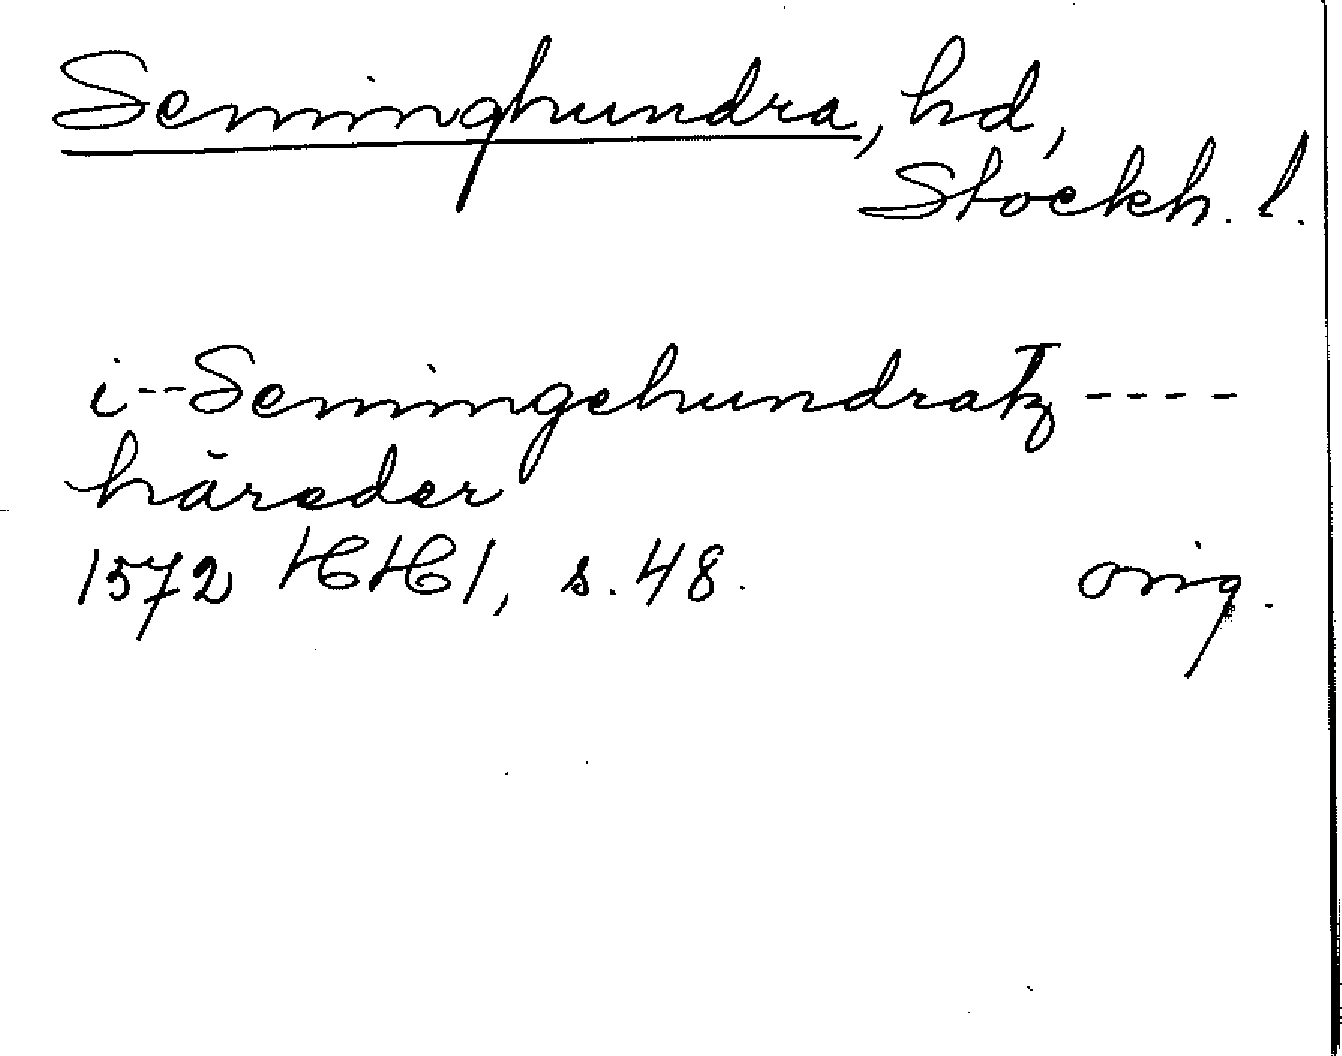 Seminghundra, hd,
Stockh. l.
i--Semingehundratz----
häreder
1572 HH1, s. 48. orig.